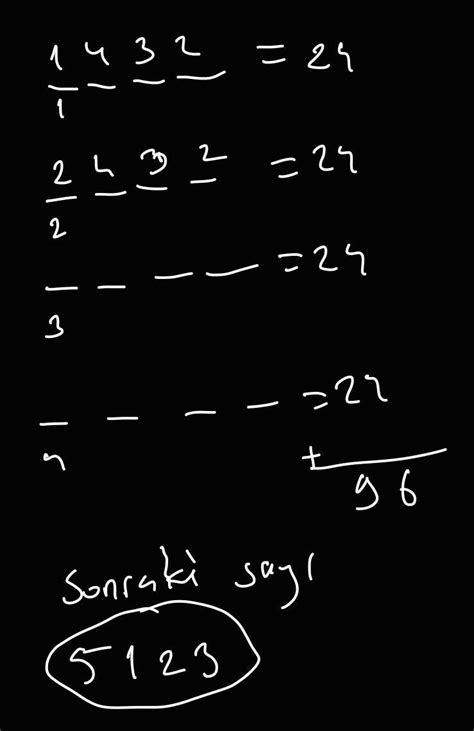 1 4 3 2 = 24
1
2 4 3 2 = 24
2
_ _ _ _ = 24
3
_ _ _ _ = 24
4
+
96
Sonraki sayı
5123